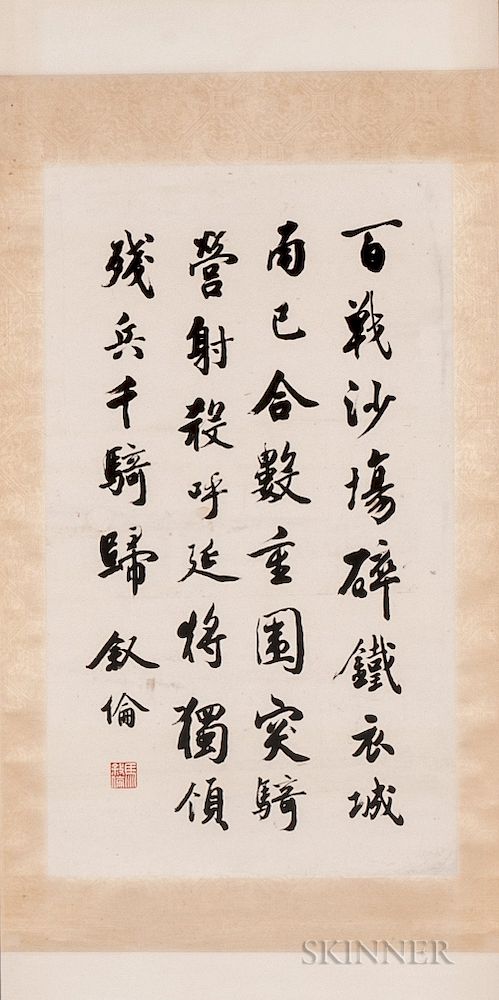 百戰沙場碎鐵衣城
南已合數重圍突騎
營射殺呼延將獨領
殘兵千騎歸 叙倫
馬叙倫
SKINNER